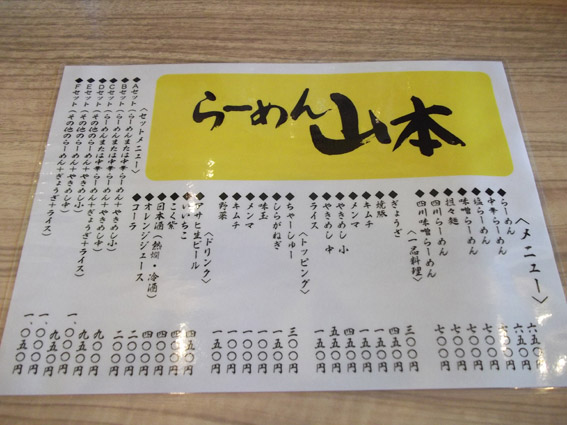 らーめん 山本
<メニュー>
◆らーめん 六五〇円
◆中華らーめん 六五〇円
◆塩らーめん 七〇〇円
◆味噌らーめん 七〇〇円
◆担々麺 七〇〇円
◆四川らーめん 七〇〇円
◆四川味噌らーめん 七〇〇円
<一品料理>
◆ぎょうざ 三〇〇円
◆焼豚 四五〇円
◆キムチ 一五〇円
◆メンマ 一五〇円
◆やきめし 小 四五〇円
◆やきめし 中 五五〇円
◆ライス 一五〇円
<トッピング>
◆ちゃーしゅー 三〇〇円
◆しらがねぎ 一五〇円
◆味玉 一〇〇円
◆メンマ 一〇〇円
◆キムチ 一〇〇円
◆野菜 一五〇円
<ドリンク>
◆アサヒ生ビール 四五〇円
◆いいちこ 四〇〇円
◆こく紫 四〇〇円
◆日本酒(熱燗・冷酒) 四〇〇円
◆オレンジジュース 二〇〇円
◆コーラ 二〇〇円
<セットメニュー>
◆Aセット(らーめんまたは中華らーめん+やきめし小)
◆Bセット(らーめんまたは中華らーめん+やきめし中)
◆Cセット(らーめんまたは中華らーめん+ぎょうざ+ライス)
◆Dセット(その他のらーめん+やきめし小)
◆Eセット(その他のらーめん+やきめし中)
◆Fセット(その他のらーめん+ぎょうざ+ライス)